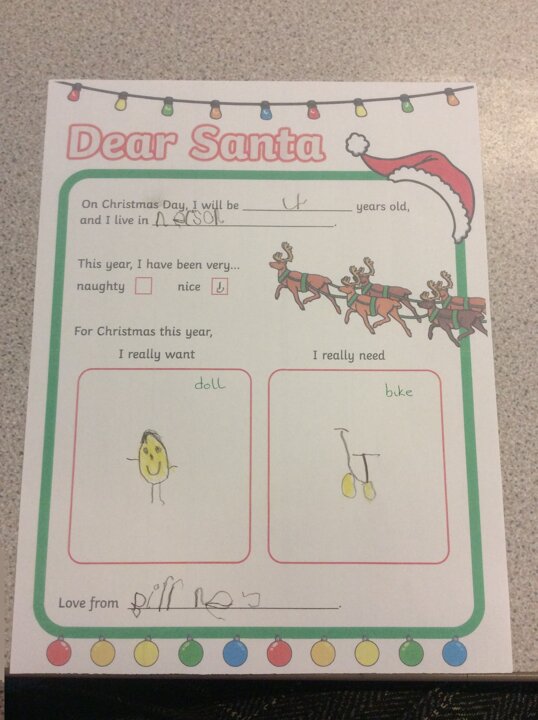 Dear Santa
On Christmas Day, I will be 4 years old,
and I live in nelson.
This year, I have been very...
naughty nice
For Christmas this year,
I really want I really need
doll bike
Love from